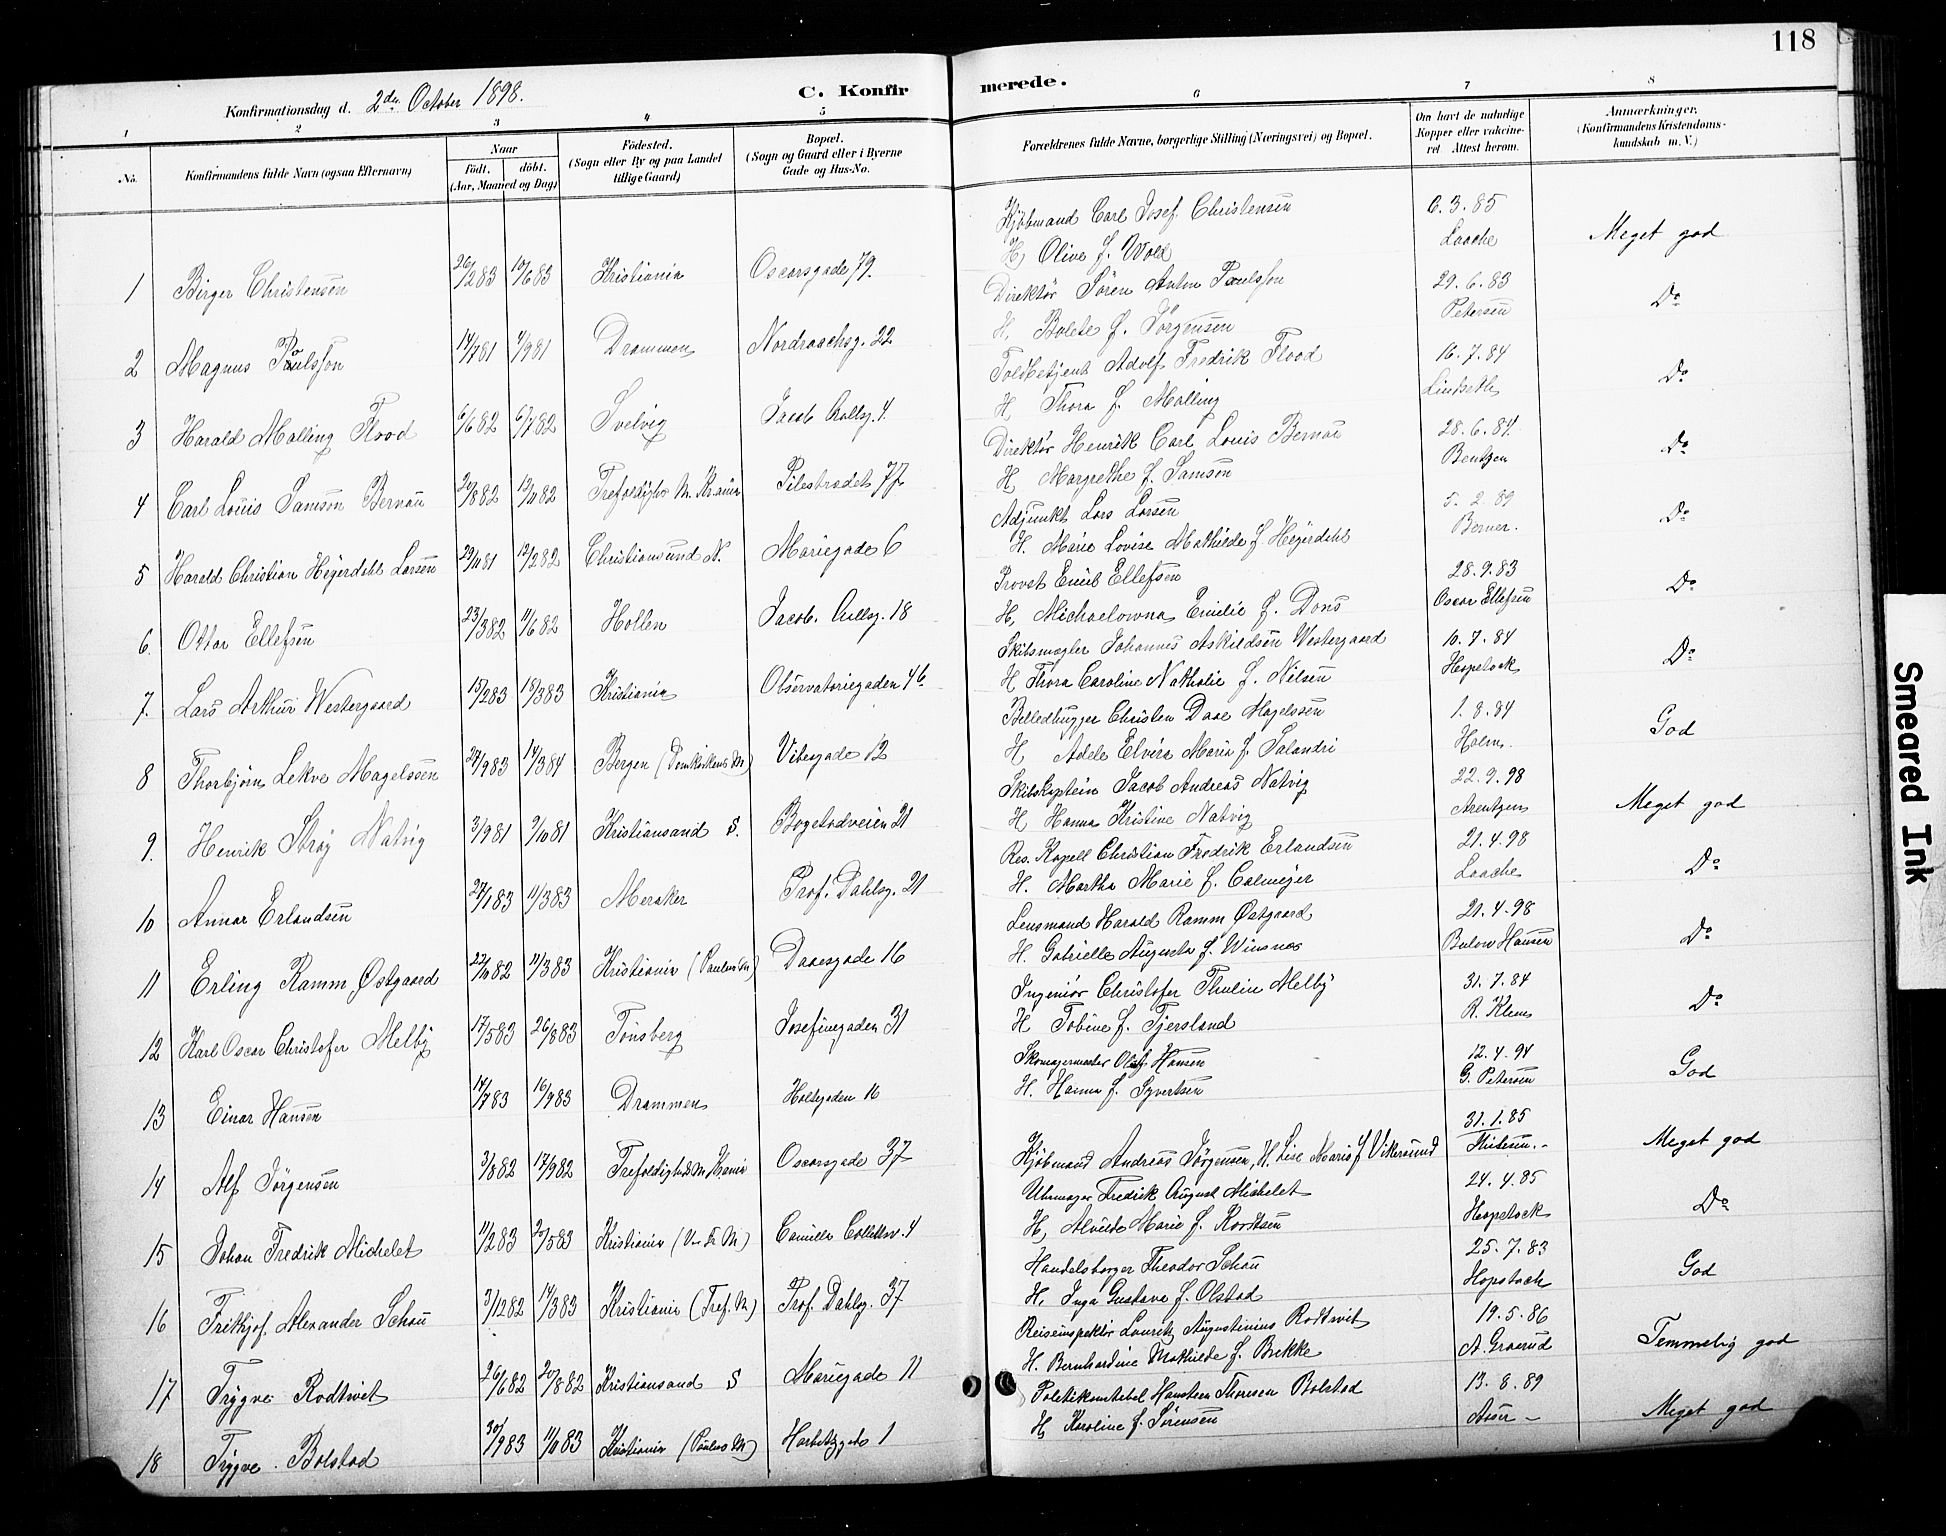 118
Konfirmationsdag d. 2den October 1898.
C. Konfirmerede.
1 2 3 4 5 6 7 8
No.
Konfirmandens fulde Navn (ogsaa Efternavn)
Naar
födt. döbt.
(Aar, Maaned og Dag)
Födested.
(Sogn eller By og paa Landet
tillige Gaard)
Bopæl.
(Sogn og Gaard eller i Byerne
Gade og Hus-No.
Forældrenes fulde Navne, borgerlige Stilling (Næringsvei) og Bopæl.
Om havt de naturlige
Kopper eller vakcine-
ret Attest herom.
Anmærkninger.
(Konfirmandens Kristendoms-
kundskab m. V.)
Kjöbmand Carl Josef Christensen 6.3.85
1 Birger Christensen 26/2 83 10/6 83 Kristiania Oscarsgade 79. H, Olive f. Wold Laache Meget god
Direktör Sören Anton Paulsson 29.6.83
2 Magnus Paulsson 14/7 81 4/9 81 Drammen Nordraachsg. 22 H, Bolete f. Jörgensen Petersen Do
Toldbetjent Adolf Fredrik Flood 16.7.84
3 Harald Malling Flood 6/6 82 6/7 82 Svelvig Jacob Aallsg. 4 H, Thora f. Malling Do
Direktör Henrik Carl Louis Bernau 28.6.84
4 Carl Louis Samson Bernau 20/8 82 12/11 82 Trefoldigh. M. Kr.ania Pilestrædet 77 H, Margrethe f. Samson Bentzen Do
Adjunkt Lars Larsen 5.2.89
5 Harald Christian Hegerdahl Larsen 29/11 81 12/2 82 Christiansund N. Mariegade 6 H. Marie Lovise Mathilde f. Hegerdahl Berner. Do
Provst Emil Ellefsen 28.9.83
6. Ottar Ellefsen 23/3 82 11/6 82 Hollen Jacob. Aallsg. 18 H, Emilie f. Dons Oscar Ellefsen Do
Skibsmægler Johannes Askildsen Westergaard 16.7.84
7. Lars Arthur Westergaard 15/2 83 18/3 83 Kristiania Observatoriegaden 4b H Thora Caroline Nathalie f. Nilsen Hopstock Do
Billedhugger Christen Daae Magelssen 1.8.84
8 Thorbjörn Lekve Magelssen 24/9 83 14/3 84 Bergen (Domkirkens M) Vibesgade 12 H Adele Elvira Maria f. Salandri Holm. God
Skibskaptein Jacob Andreas Natvig 22.9.98
9. Henrik Stray Natvig 3/9 81 9/10 81 Kristiansand S. Bogstadveien 21 H, Hanna Kristine Natvig Arentzen Meget god
Res. Kapell Christian Fredrik Erlandsen 21.4.98
10 Annar Erlandsen 27/1 83 11/3 83 Meraker Prof. Dahlsg. 21 H. Martha Marie f. Calmeyer Laache Do
Lensmand Harald Ramm Østgaard 21.4.98
11 Erling Ramm Østgaard 22/11 82 11/3 83 Kristiania (Paulus M) Daaesgade 16 H. Gabrielle Augusta f. Winsnes Bulow Hansen Do
Ingeniör Christofer Thulin Melby 31.7.84
12 Karl Oscar Christofer Melby 17/5 83 26/8 83 Tönsberg Josefinegaden 31 H Tobine f. Tjersland R. Klem Do
Skomagermester Oluf Hansen 12.4.94
13 Einar Hansen 14/7 83 16/9 83 Drammen Holtegaden 16 H. Hanna f. Syvertsen G. Petersen God
31.1.85
14 Alf Jörgensen 3/8 82 17/9 82 Trefoldigheds M. Kr.ania Oscarsgade 37 Kjöbmand Andreas Jörgensen, H. Lise Marie f Vikersund Meget god
Uhrmager Fredrik August Michelet 24.4.85
15 Johan Fredrik Michelet 11/2 83 20/5 83 Kristiania (V. Fr. M) Camilla Collettsv. 4 H, Alvilde Marie f. Knudsen Hopstock Do
Handelsborger Theodor Schou 25.7.83
16 Frithjof Alexander Schou 3/12 82 14/3 83 Kristiania (Tref. M) Prof. Dahlsg. 37 H, Inga Gustava f. Olstad Hopstock God
Reiseinspektör Lauritz Augustinius Rodtwit 19.5.86
17 Trygve Rodtwit 26/6 82 20/8 82 Kristiansand S Mariegade 11 H. Bernhardine Mathilde f. Bakke A. Graarud Temmelig god
Politikonstabel Thoresen Bolstad 13.8.89
18 Trygve Bolstad 30/9 83 11/11 83 Kristiania (Paulus M) 1 H, Karoline f. Sörensen Meget god
Smeared Ink